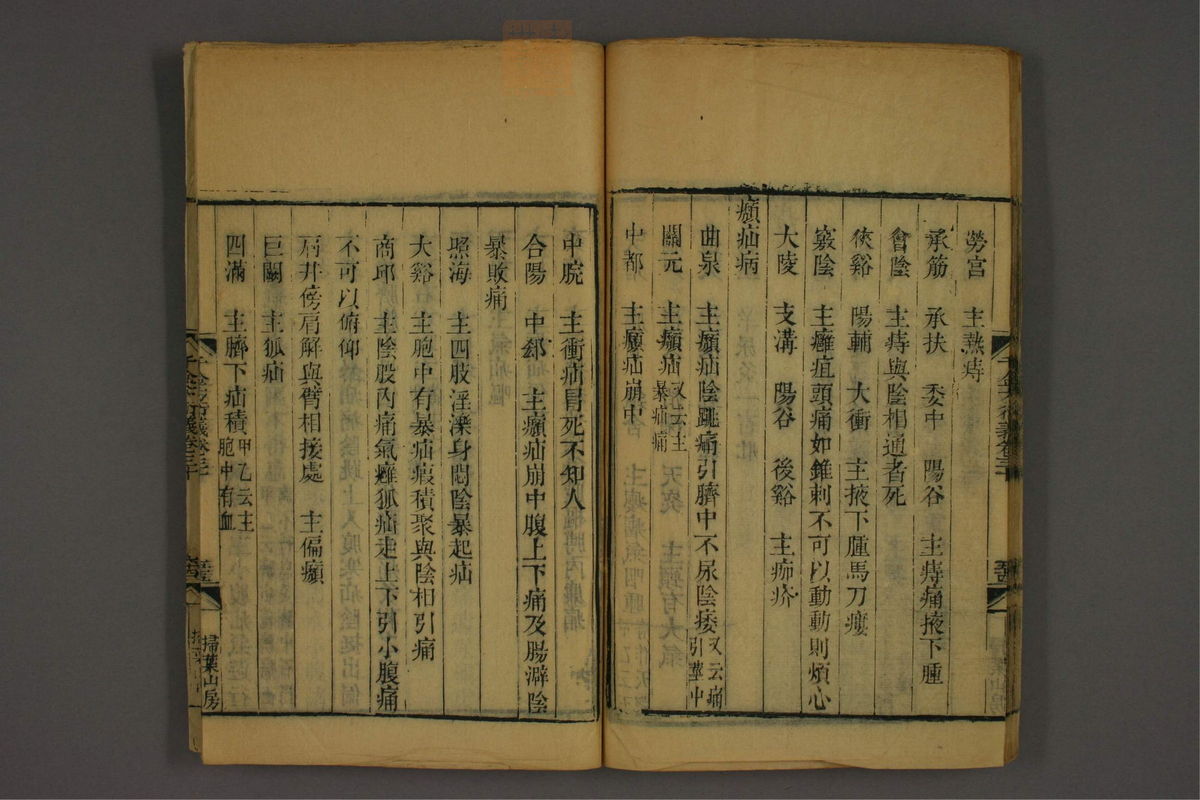 勞宮　主熱痔
承筋　承扶　委中　陽谷　主痔痛掖下腫
會陰　主痔與陰相通者死
俠谿　陽輔　大衝　主掖下腫馬刀瘻
竅陰　主癰疽頭痛如錐刺不可以動動則煩心
大陵　支溝　陽谷　後谿　主痂疥
㿗疝病
曲泉　主㿗疝陰跳痛引臍中不尿陰痿又云痛引莖中
關元　主㿗疝又云主暴疝痛
中都　主㿗疝崩中
中脘　主衝疝冒死不知人
合陽　中郄　主㿗疝崩中腹上下痛及腸澼陰
暴敗痛
照海　主四肢淫濼身悶陰暴起疝
大谿　主胞中有暴疝瘕積聚與陰相引痛
商邱　主陰股內痛氣癰狐疝走上下引小腹痛
不可以俯仰
肩井傍肩解與臂相接處　主偏㿗
巨闕　主狐疝
四滿　主臍下疝積甲乙云主胞中有血
掃葉山房